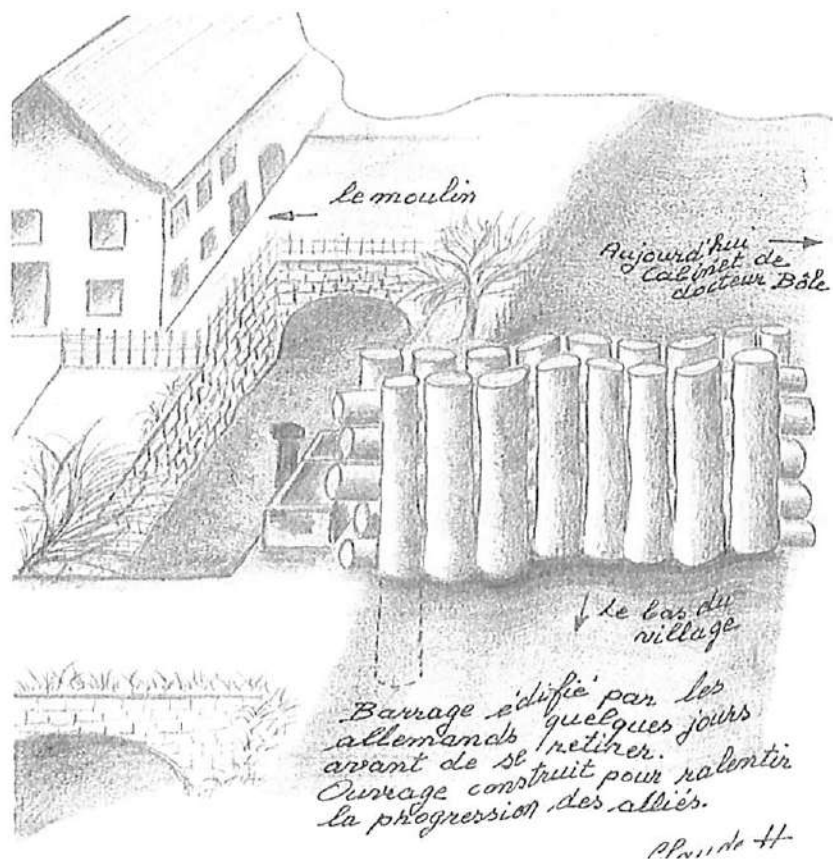 le moulin
Aujourd'hui
Cabinet de
docteur Bôle
Le bas du
village
Barrage édifié par les
allemands quelques jours
avant de se retirer.
Ouvrage construit pour ralentir
la progression des alliés.
Claude H